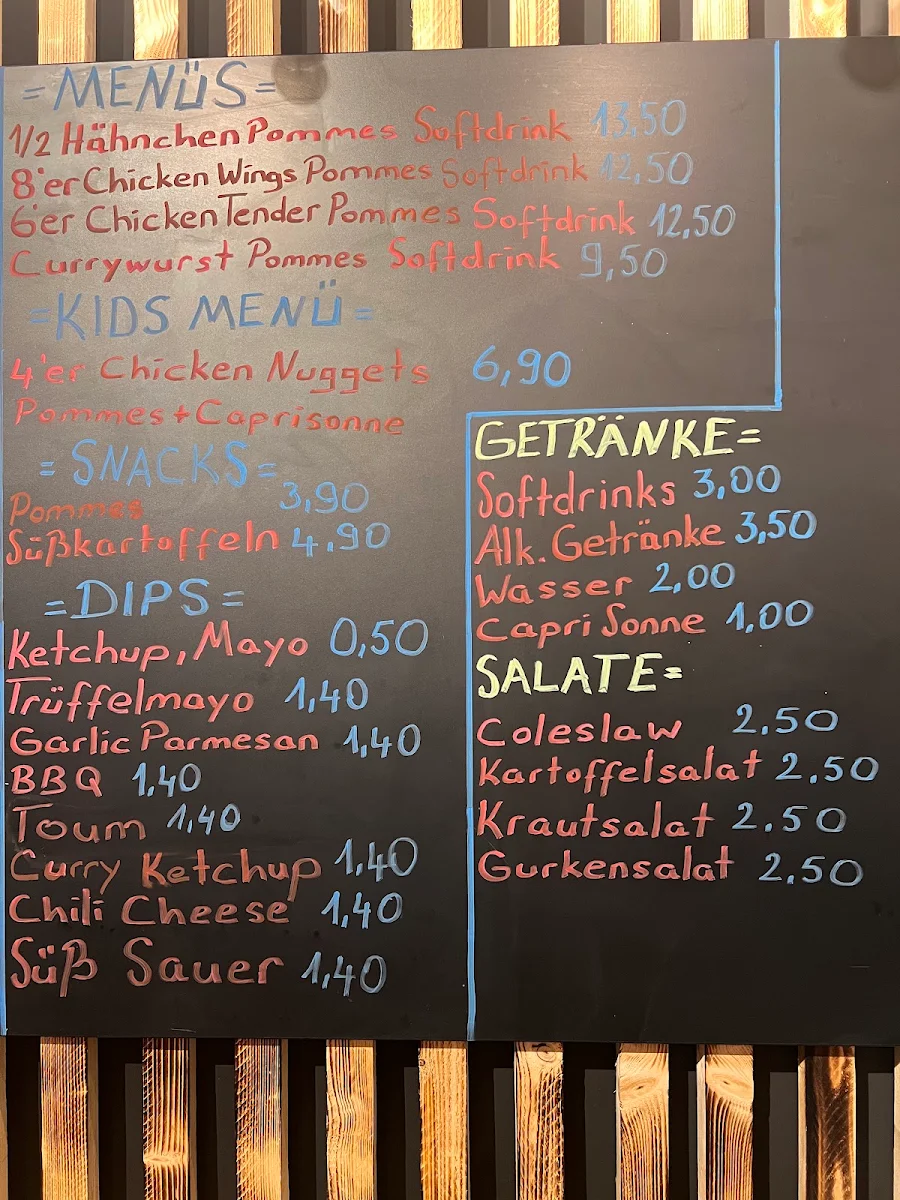 =MENÜS=
1/2 Hähnchen Pommes Softdrink 13,50
8'er Chicken Wings Pommes Softdrink 12,50
6'er Chicken Tender Pommes Softdrink 12,50
Currywurst Pommes Softdrink 9,50
=KIDS MENÜ=
4'er Chicken Nuggets 6,90
Pommes+Caprisonne
=SNACKS=
Pommes 3,90
Süßkartoffeln 4.90
=DIPS=
Ketchup, Mayo 0,50
Trüffelmayo 1,40
Garlic Parmesan 1,40
BBQ 1,40
Toum 1,40
Curry Ketchup 1,40
Chili Cheese 1,40
Süß Sauer 1,40
GETRÄNKE=
Softdrinks 3,00
Alk. Getränke 3,50
Wasser 2,00
Capri Sonne 1,00
SALATE=
Coleslaw 2.50
Kartoffelsalat 2.50
Krautsalat 2.50
Gurkensalat 2.50